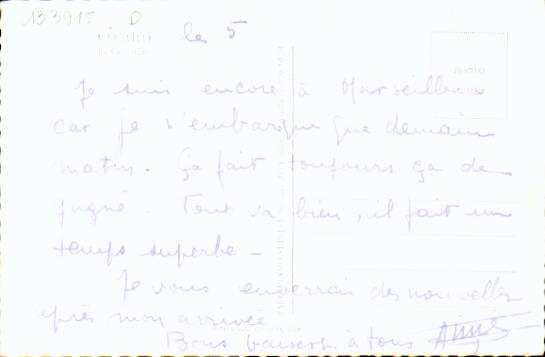 133915 D
MARSEILLE
le 5
PHOTO
Je suis encore à Marseille
car je n'embarque que demain
matin. Ça fait toujours ça de
gagné. Tout va bien, il fait un
temps superbe -
Je vous enverrai des nouvelles
après mon arrivée
Bons baisers à tous Aimé